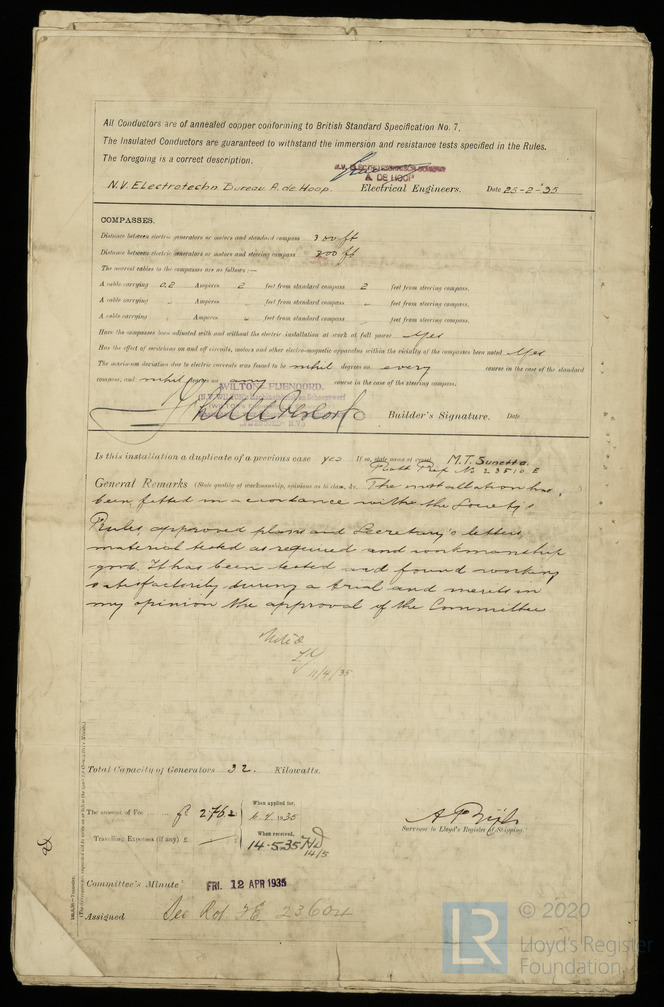 All Conductors are of annealed copper conforming to British Standard Specification No. 7.
The Insulated Conductors are guaranteed to withstand the immersion and resistance tests specified in the Rules.
The foregoing is a correct description.
A. DE HOOP
N.V. Electrotechn. Bureau A. de Hoop. Electrical Engineers. Date 25-2-35
COMPASSES.
Distance between electric generators or motors and standard compass 300 ft
Distance between electric generators or motors and steering compass 300 ft
The nearest cables to the compasses are as follows :—
A cable carrying 0.2 Amperes 2 feet from standard compass 2 feet from steering compass.
A cable carrying Amperes feet from standard compass feet from steering compass.
A cable carrying Amperes feet from standard compass feet from steering compass.
Have the compasses been adjusted with and without the electric installation at work at full power Yes
Has the effect of switching on and off circuits, motors and other electro-magnetic apparatus within the vicinity of the compasses been noted Yes
The maximum deviation due to electric currents was found to be nihil degrees on every course in the case of the standard
compass, and nihil degrees on any course in the case of the steering compass.
WILTON-FIJENOORD.
Builder's Signature. Date
Is this installation a duplicate of a previous case yes If so, state name of vessel M.T. Sunetta.
No 23510 E
General Remarks (State quality of workmanship, opinions as to class, &c. The installation has
been fitted in accordance with the Society's
Rules, approved plans and Secretary's letters,
material tested as required and workmanship
good. It has been tested and found working
satisfactorily during a trial and merits in
my opinion the approval of the Committee
11/4/35
Total Capacity of Generators 32. Kilowatts.
The amount of Fee 276.2
When applied for,
1935
Travelling Expenses (if any) £
When received,
14.5.35
14/5
Surveyor to Lloyd's Register of Shipping.
Committee's Minute FRI. 12 APR 1935
Assigned See Rot. F.E. 23604
LR
© 2020
Lloyd's Register
Foundation.